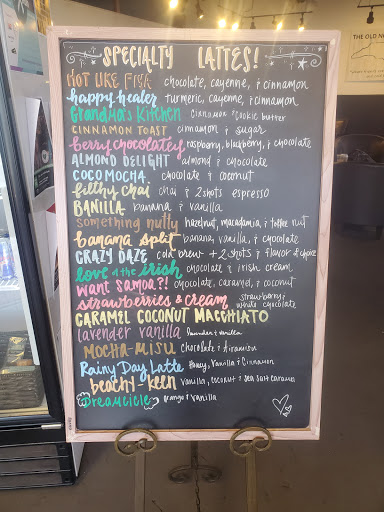 THE OLD N
SPECIALTY LATTES!
HOT LIKE FIYA chocolate, cayenne, & cinnamon
happy healer turmeric, cayenne, & cinnamon
Grandma's Kitchen cinnamon cookie butter
CINNAMON TOAST cinnamon & sugar
berry chocolatey raspberry, blackberry, & chocolate
ALMOND DELIGHT almond & chocolate
COCO MOCHA chocolate & coconut
filthy chai chai & 2 shots espresso
BANILLA banana & vanilla
something nutty hazelnut, macadamia, & toffee nut
banana split banana, vanilla, & chocolate
CRAZY DAZE cold brew + 2 shots & flavor of choice
love of the irish chocolate & irish cream
want samoa?! chocolate, caramel, & coconut
strawberries & cream strawberry & white chocolate
CARAMEL COCONUT MACCHIATO
lavender vanilla lavender & vanilla
MOCHA-MISU chocolate & tiramisu
Rainy Day Latte Honey, Vanilla & Cinnamon
beachy-keen vanilla, coconut & sea salt caramel
Dreamcicle orange & vanilla